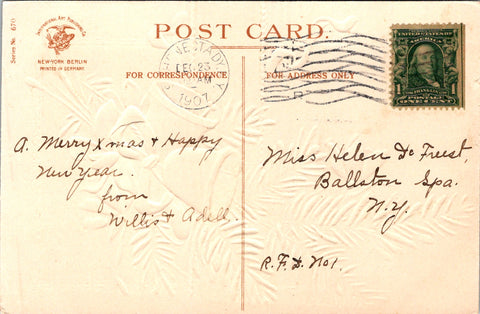 Series No. 670
International Art Publishing Co.
NEW-YORK BERLIN
PRINTED IN GERMANY
POST CARD.
FOR CORRESPONDENCE
FOR ADDRESS ONLY
SCHENECTADY, N.Y.
DEC 23
AM
1907
UNITED STATES OF AMERICA
FRANKLIN
1 POSTAGE 1
ONE CENT
A. Merry Xmas & Happy
New Year.
from
Willis & Adell.
Miss Helen De Freest,
Ballston Spa.
N.Y.
R.F.D. No 1.